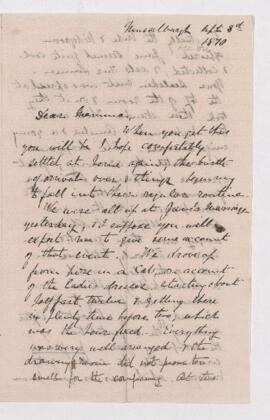 Musselburgh Sept 3rd
1870
Dear Mamma
When you get this
you will be I hope comfortably
settled at again the bustle
of arrival over & things
to fall into their regular routine.
We were all up at Jane's marriage
yesterday & I suppose you will
expect me to give some account
of that event. We drove up
from here in a Cab, on account
of the Ladies dresses starting about
half past twelve & getting there
in plenty time before two which
was the hour fixed. Everything
was very well arranged & the
drawing room did not prove too
small for the company. At two